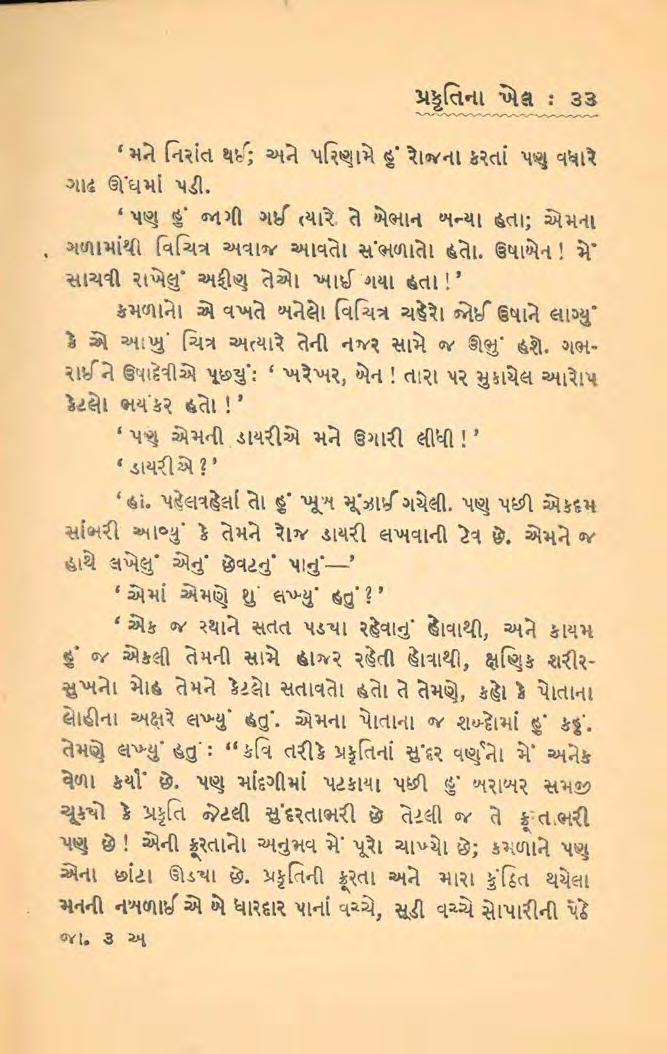 પ્રકૃતિના ખેલ : ૩૩
‘મને નિરાંત થઈ; અને પરિણામે હું રોજના કરતાં પણ વધારે
ગાઢ ઊંઘમાં પડી.
‘પણ હું જાગી ગઈ ત્યારે તે બેભાન બન્યા હતા; એમના
ગળામાંથી વિચિત્ર અવાજ આવતો સંભળાતો હતો. ઉષાબેન! મેં
સાચવી રાખેલું અફીણ તેઓ ખાઈ ગયા હતા!’
કમળાનો એ વખતે બનેલો વિચિત્ર ચહેરો જોઈ ઉષાને લાગ્યું
કે એ આખું ચિત્ર અત્યારે તેની નજર સામે જ ઊભું હશે. ગભ-
રાઈને ઉષાદેવીએ પૂછ્યું: ‘ખરેખર, બેન! તારા પર મુકાયેલ આરોપ
કેટલો ભયંકર હતો!’
‘પણ એમની ડાયરીએ મને ઉગારી લીધી!’
‘ડાયરીએ?’
‘હાં. પહેલવહેલાં તો હું ખૂબ મૂંઝાઈ ગયેલી. પણ પછી એકદમ
સાંભરી આવ્યું કે તેમને રોજ ડાયરી લખવાની ટેવ છે. એમને જ
હાથે લખેલું એનું છેવટનું પાનું—’
‘એમાં એમણે શું લખ્યું હતું?’
‘એક જ સ્થાને સતત પડ્યા રહેવાનું હોવાથી, અને કાયમ
હું જ એકલી તેમની સામે હાજર રહેતી હોવાથી, ક્ષણિક શરીર-
સુખનો મોહ તેમને કેટલો સતાવતો હતો તે તેમણે, કહો કે પોતાના
લોહીના અક્ષરે લખ્યું હતું. એમના પોતાના જ શબ્દોમાં હું કહું.
તેમણે લખ્યું હતું: “કવિ તરીકે પ્રકૃતિનાં સુંદર વર્ણનો મેં અનેક
વેળા કર્યાં છે. પણ માંદગીમાં પટકાયા પછી હું બરાબર સમજી
ચૂક્યો કે પ્રકૃતિ જેટલી સુંદરતાભરી છે તેટલી જ તે ક્રૂરતાભરી
પણ છે! એની ક્રૂરતાનો અનુભવ મેં પૂરો ચાખ્યો છે; કમળાને પણ
એના છાંટા ઊડ્યા છે. પ્રકૃતિની ક્રૂરતા અને મારા કુંઠિત થયેલા
મનની નબળાઈ એ બે ધારદાર પાનાં વચ્ચે, સૂડી વચ્ચે સોપારીની પેઠે
જા. ૩ અ